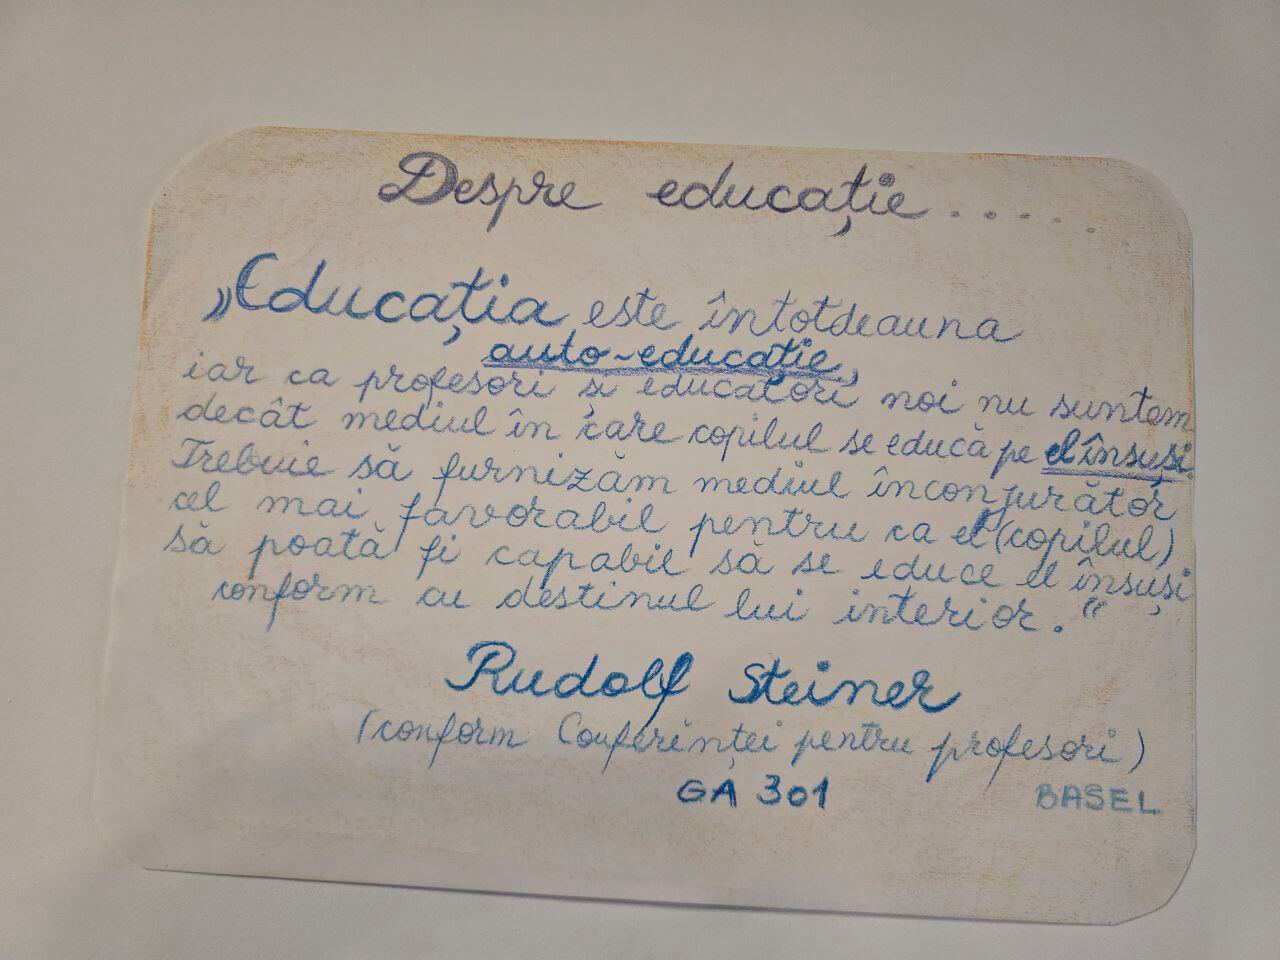 Despre educație......
„Educația este întotdeauna
auto-educație,
iar ca profesori și educatori noi nu suntem
decât mediul în care copilul se educă pe el însuși.
Trebuie să furnizăm mediul înconjurător
cel mai favorabil pentru ca el (copilul)
să poată fi capabil să se educe el însuși
conform cu destinul lui interior."
Rudolf Steiner
(conform Conferinței pentru profesori)
GA 301 BASEL